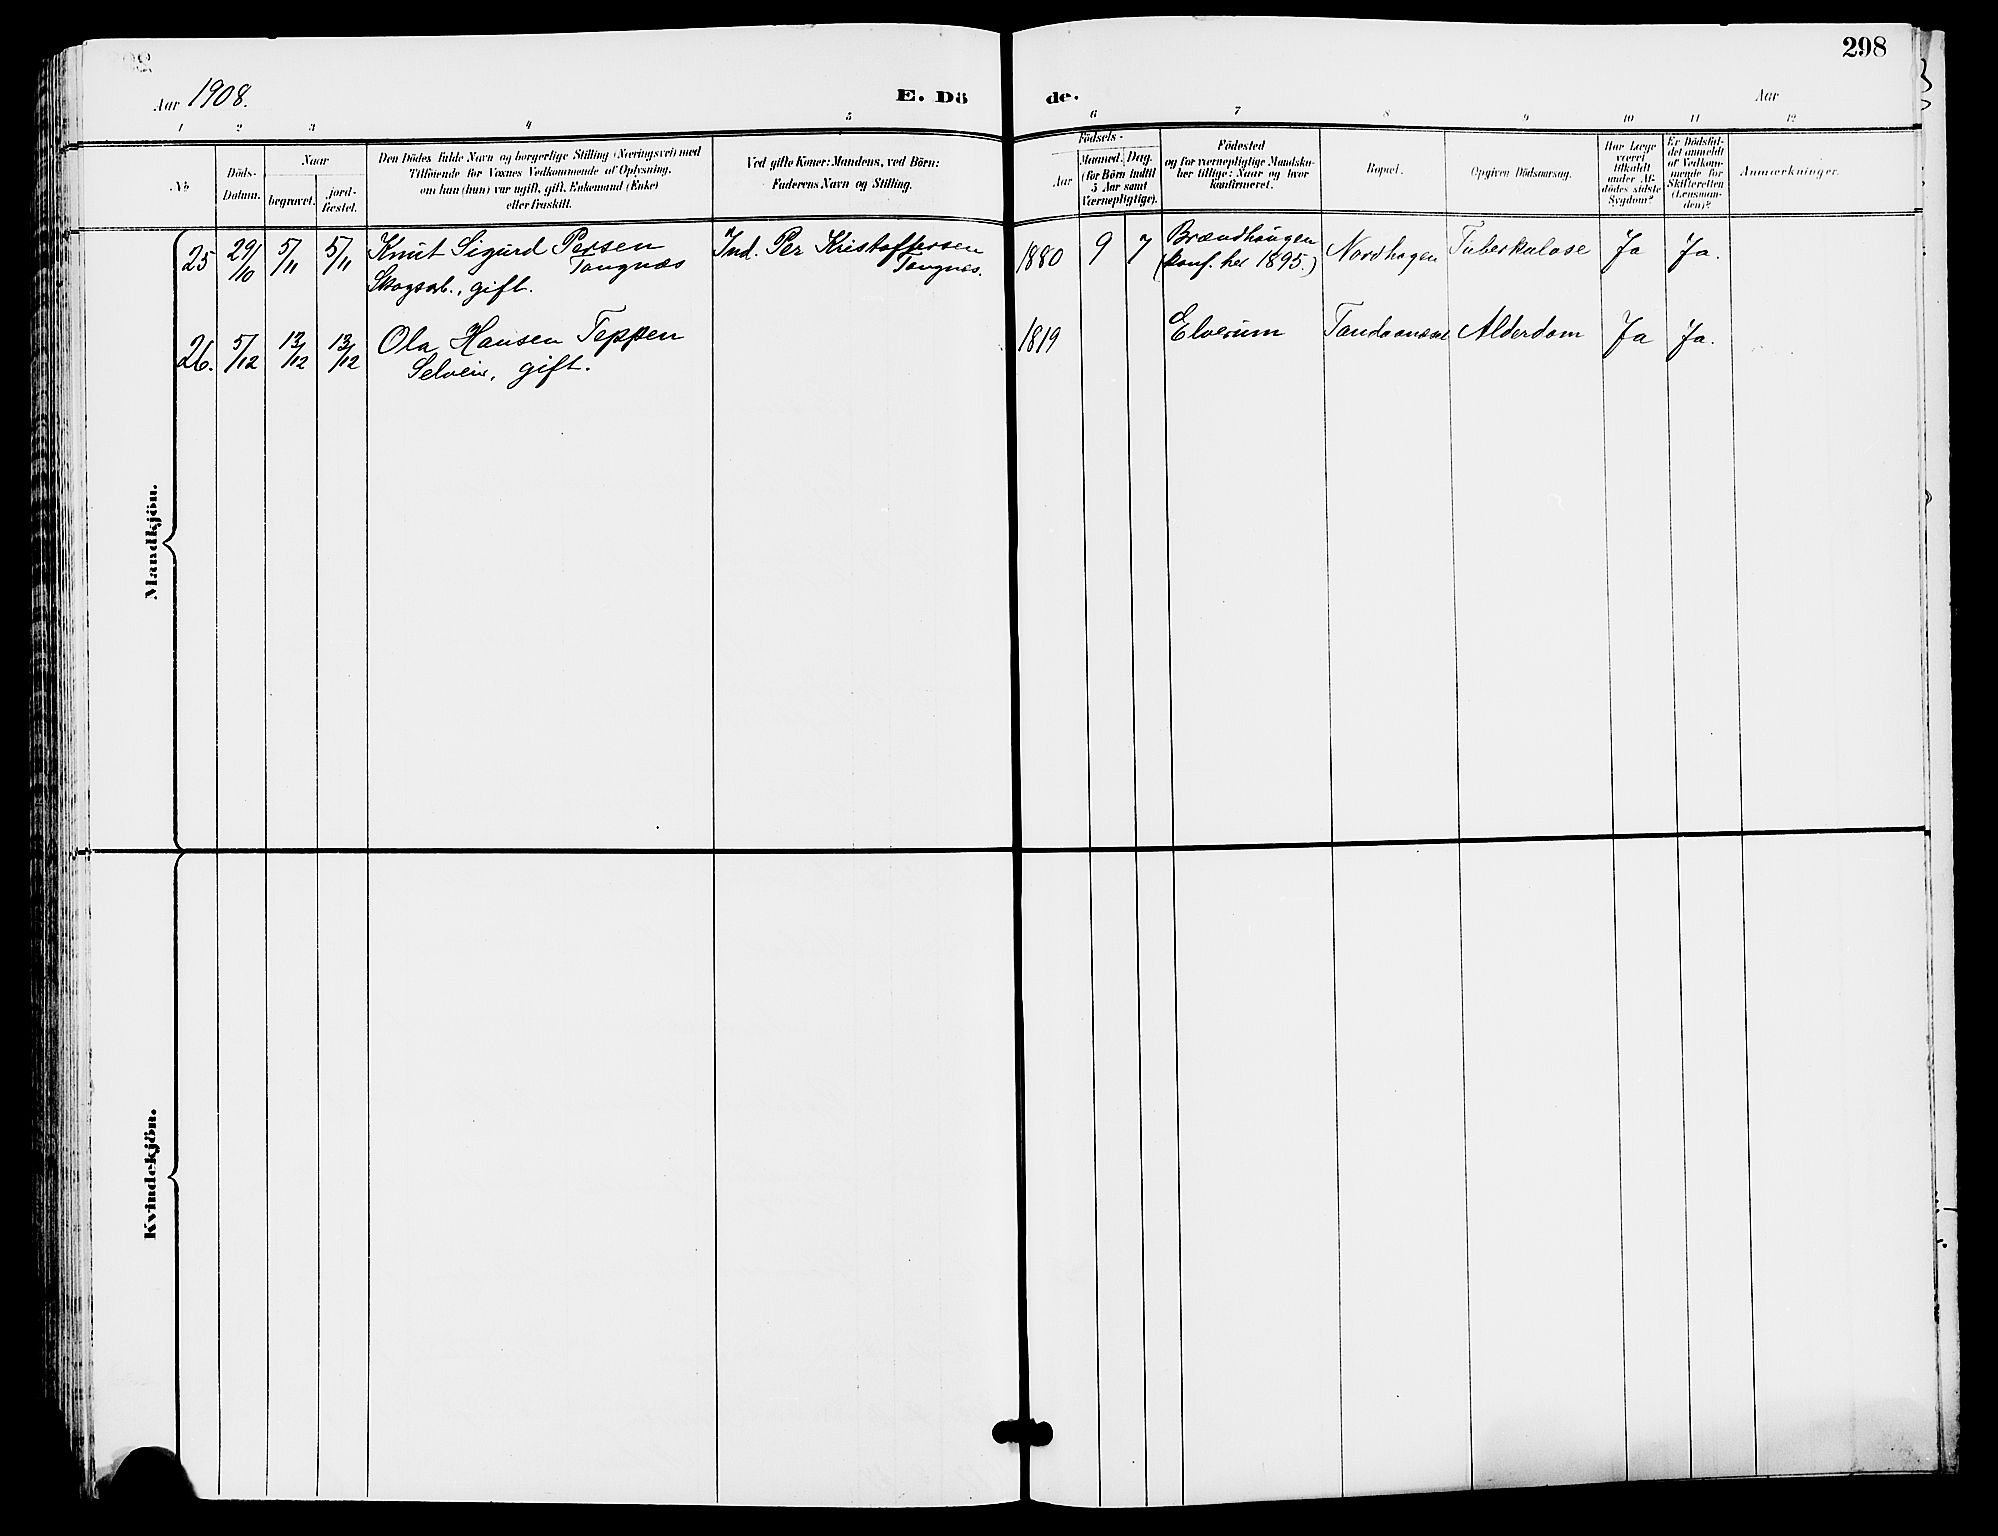 298
Aar 1908.
E. Dö
de.
Aar
1 2 3 4 5 6 7 8 9 10 11 12
No
Döds-
Datum.
Naar
begravet.
jord-
fæstet.
Den Dödes fulde Navn og borgerlige Stilling (Næringsvei) med
Tilföiende for Voxnes Vedkommende af Oplysning,
om han (hun) var ugift, gift, Enkemand (Enke)
eller fraskilt.
Ved gifte Koner: Mandens, ved Börn:
Faderens Navn og Stilling.
Födsels-
Aar
Maaned. Dag.
(for Börn indtil
5 Aar samt
Værnepligtige).
Födested
og for værnepligtige Mandska-
ber tillige: Naar og hvor
konfirmeret.
Bopæl.
Opgiven Dödsaarsag.
Har Læge
været
tilkaldt
under Af-
dödes sidste
Sygdom?
Er Dödsfal-
det anmeldt
af Vedkom-
mende for
Skifteretten
(Lensman-
den)?
Anmærkninger.
25 29/10 5/11 5/11 Knut Sigurd Persen
Tangnæs
Skogsarb., gift.
Ind. Per Kristoffersen
Tangnæs.
1880 9 7 Brændhaugen
(konf. her 1895.)
Nordhagen Tuberkulose Ja Ja.
26. 5/12 13/12 13/12 Ola Hansen Teppen
Selveier, gift.
1819 Elverum Alderdom Ja Ja.
Mandkjön.
Kvindekjön.